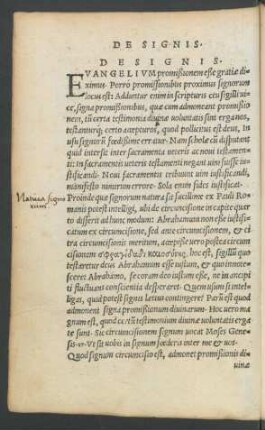 DE SIGNIS.
DE SIGNIS.
EVANGELIVM promissionem esse gratiæ di
ximus. Porro promissionibus proximus signorum
locus est: Adduntur enim in scripturis ceu sigilli ui-
ce, signa promissionibus, quæ cum admoneant promissio
num, tū certa testimonia diuinæ uoluntatis sint erga nos,
testanturq; certo accepturos, quod pollicitus est deus, in
usu signorū fœdissime erratur. Nam scholæ cū disputant
quid intersit inter sacramenta ueteris ac noui testamen-
ti: in sacramentis ueteris testamenti negant uim fuisse ius-
tificandi. Noui sacramentis tribuunt uim iustificandi,
manifesto nimirum errore. Sola enim fides iustificat.
Proinde quæ signorum natura sit facillime ex Paulo Ro
manis potest intelligi, ubi de circuncisione ca. capite quar
to disserit ad hunc modum: Abrahamum non esse iustifi-
catum ex circuncisione, sed ante circuncisionem, & ci
tra circuncisionis meritum, accepisse uero postea circun
cisionem σφραγίδα δικαιοσύνης, hoc est, sigillū quo
testaretur deus Abrahamum esse iustum, & quo agno-
sceret Abrahamus, se coram deo iustum esse, ne in ancipi
ti fluctuans conscientia desperaret. Quem usum si intel-
ligas, quid potest signis lætius contingere? Parū est quod
admonent signa promissionum diuinarum. Hoc uero ma
gnum est, quod certū testimonium diuinæ uoluntatis erga
te sunt. Sic circuncisionem signum uocat Moses Gene-
sis. Vt sit uobis in signum fœderis inter me & uos.
Quod signum circuncisio est, admonet promissionis di
uinæ
Natura signo
rum